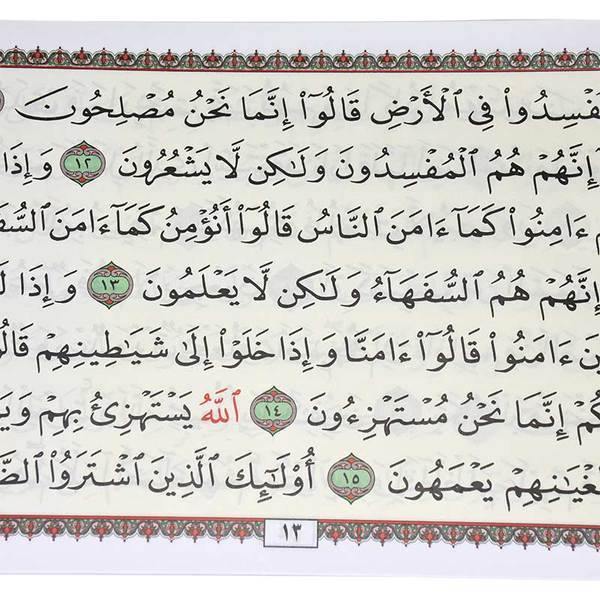 فْسِدُوا۟ فِى ٱلْأَرْضِ قَالُوٓا۟ إِنَّمَا نَحْنُ مُصْلِحُونَ
إِنَّهُمْ هُمُ ٱلْمُفْسِدُونَ وَلَٰكِن لَّا يَشْعُرُونَ ١٢ وَإِذَا
ءَامِنُوا۟ كَمَآ ءَامَنَ ٱلنَّاسُ قَالُوٓا۟ أَنُؤْمِنُ كَمَآ ءَامَنَ ٱلسُّفَ
إِنَّهُمْ هُمُ ٱلسُّفَهَآءُ وَلَٰكِن لَّا يَعْلَمُونَ ١٣ وَإِذَا لَ
ينَ ءَامَنُوا۟ قَالُوٓا۟ ءَامَنَّا وَإِذَا خَلَوْا۟ إِلَىٰ شَيَٰطِينِهِمْ قَالُ
كُمْ إِنَّمَا نَحْنُ مُسْتَهْزِءُونَ ١٤ ٱللَّهُ يَسْتَهْزِئُ بِهِمْ وَيَ
غْيَٰنِهِمْ يَعْمَهُونَ ١٥ أُو۟لَٰٓئِكَ ٱلَّذِينَ ٱشْتَرَوُا۟ ٱلضَّ
١٣